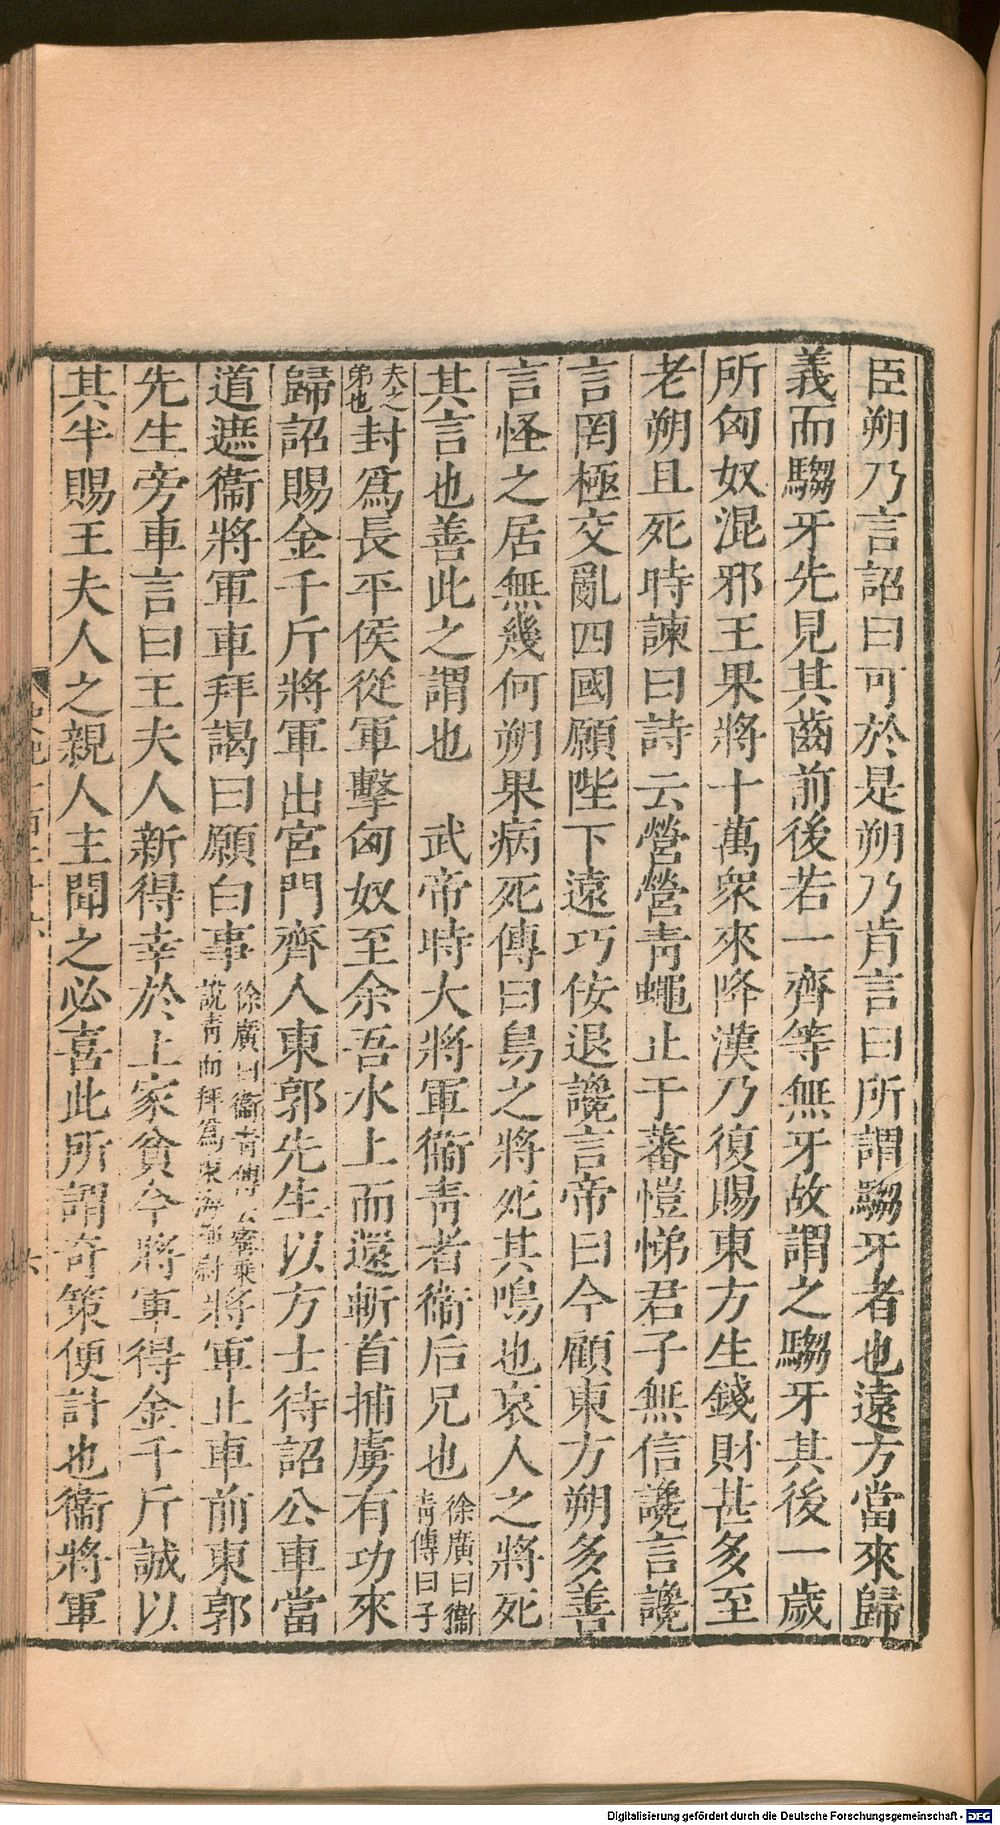 臣朔乃言詔曰可於是朔乃肯言曰所謂騶牙者也遠方當來歸
義而騶牙先見其齒前後若一齊等無牙故謂之騶牙其後一歲
所匈奴混邪王果將十萬衆來降漢乃復賜東方生錢財甚多至
老朔且死時諫曰詩云營營青蠅止于蕃愷悌君子無信讒言讒
言罔極交亂四國願陛下遠巧佞退讒言帝曰今顧東方朔多善
言怪之居無幾何朔果病死傳曰鳥之將死其鳴也哀人之將死
其言也善此之謂也　武帝時大將軍衞青者衞后兄也徐廣曰衞青傳曰子
夫之弟也封爲長平侯從軍擊匈奴至余吾水上而還斬首捕虜有功來
歸詔賜金千斤將軍出宮門齊人東郭先生以方士待詔公車當
道遮衞將軍車拜謁曰願白事徐廣曰衞青傳云甯乘說青而拜爲東海都尉將軍止車前東郭
先生旁車言曰王夫人新得幸於上家貧今將軍得金千斤誠以
其半賜王夫人之親人主聞之必喜此所謂奇策便計也衞將軍
六
Digitalisierung gefördert durch die Deutsche Forschungsgemeinschaft - DFG